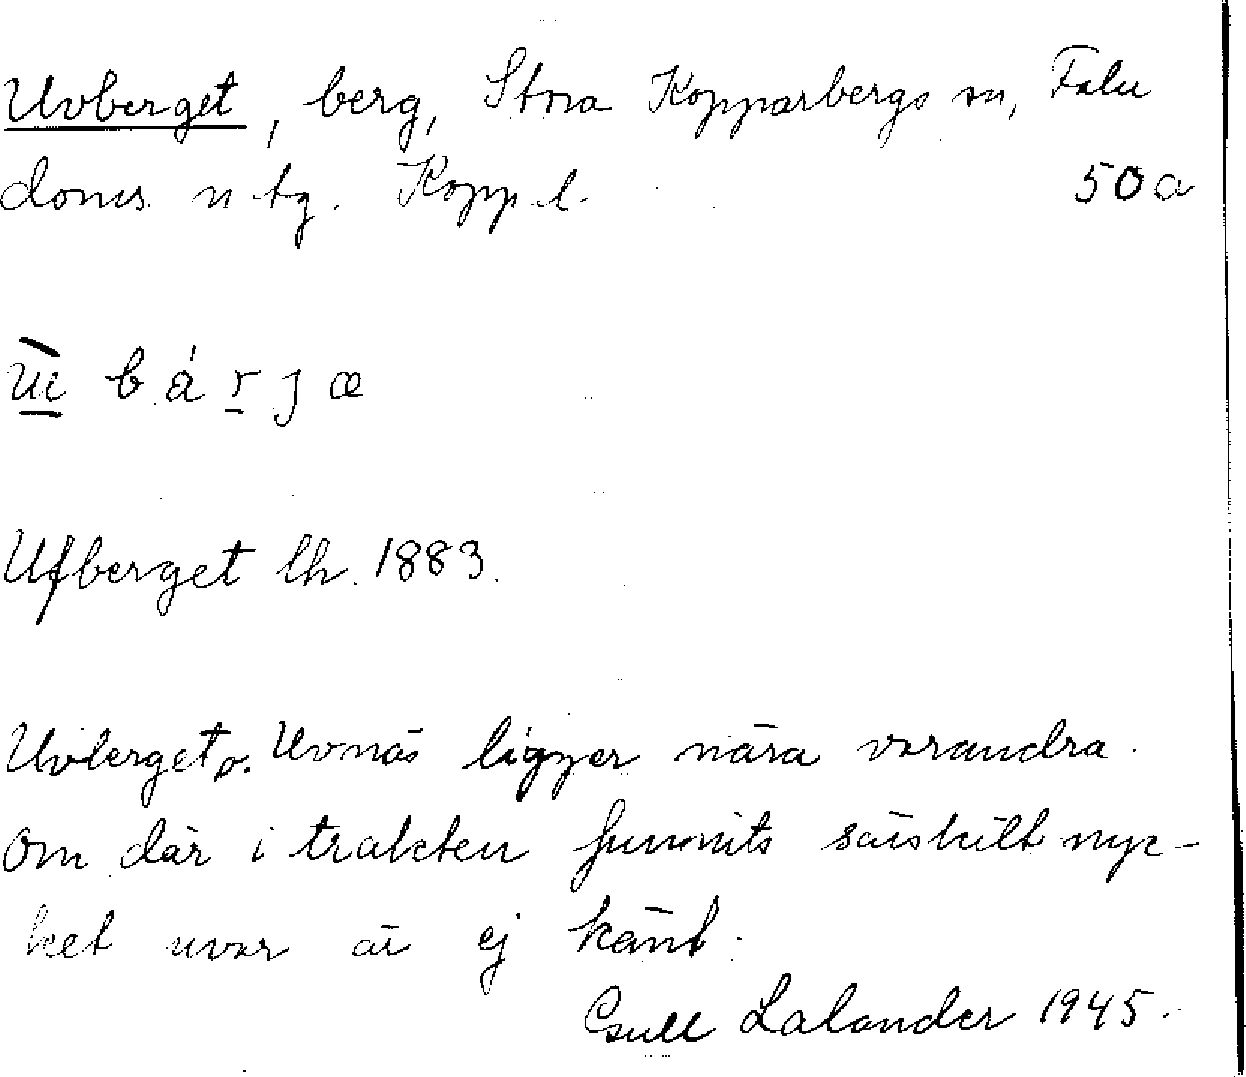 Uvberget, berg, Stora Kopparbergs sn, Falu
doms. utg. Kopp. l. 50a
b á r j æ
Ufberget lh. 1883.
Uvberget o. Uvnäs ligger nära varandra.
Om där i trakten funnits särskilt myc-
ket uvar är ej känt.
Gull Lalander 1945.